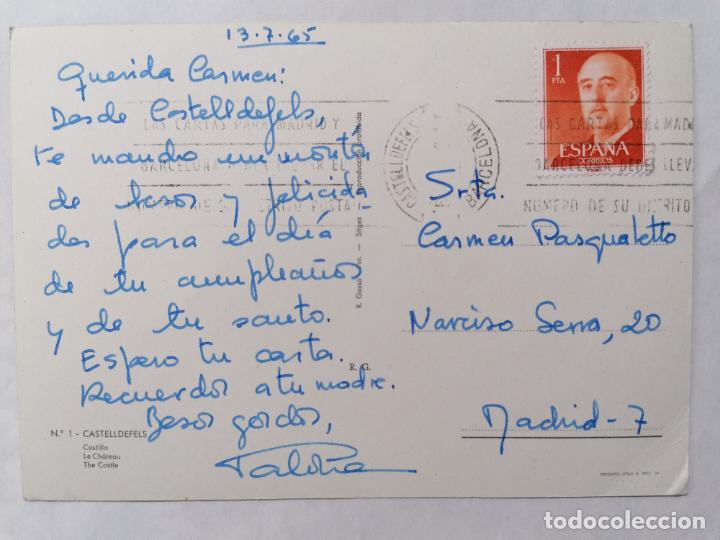 13.7.65
Querida Carmen:
Desde Castelldefels
te mando un montón
de besos y felicida-
des para el día
de tu cumpleaños
y de tu santo.
Espero tu carta.
Recuerdos a tu madre.
Besos gordos,
Paloma
N.º 1 - CASTELLDEFELS
Castillo
Le Château
The Castle
R. G.
R. Gassó - Sitges
reproducción prohibida
CASTELLDEFELS
BARCELONA
LAS CARTAS PARA MADRID Y
BARCELONA
1
PTA
ESPAÑA
CORREOS
LAS CARTAS PARA MADR
BARCELONA DEBEN LLEV
NUMERO DE SU DISTRITO
Srta.
Carmen Pasqualetto
Narciso Serra, 20
Madrid-7
todocoleccion